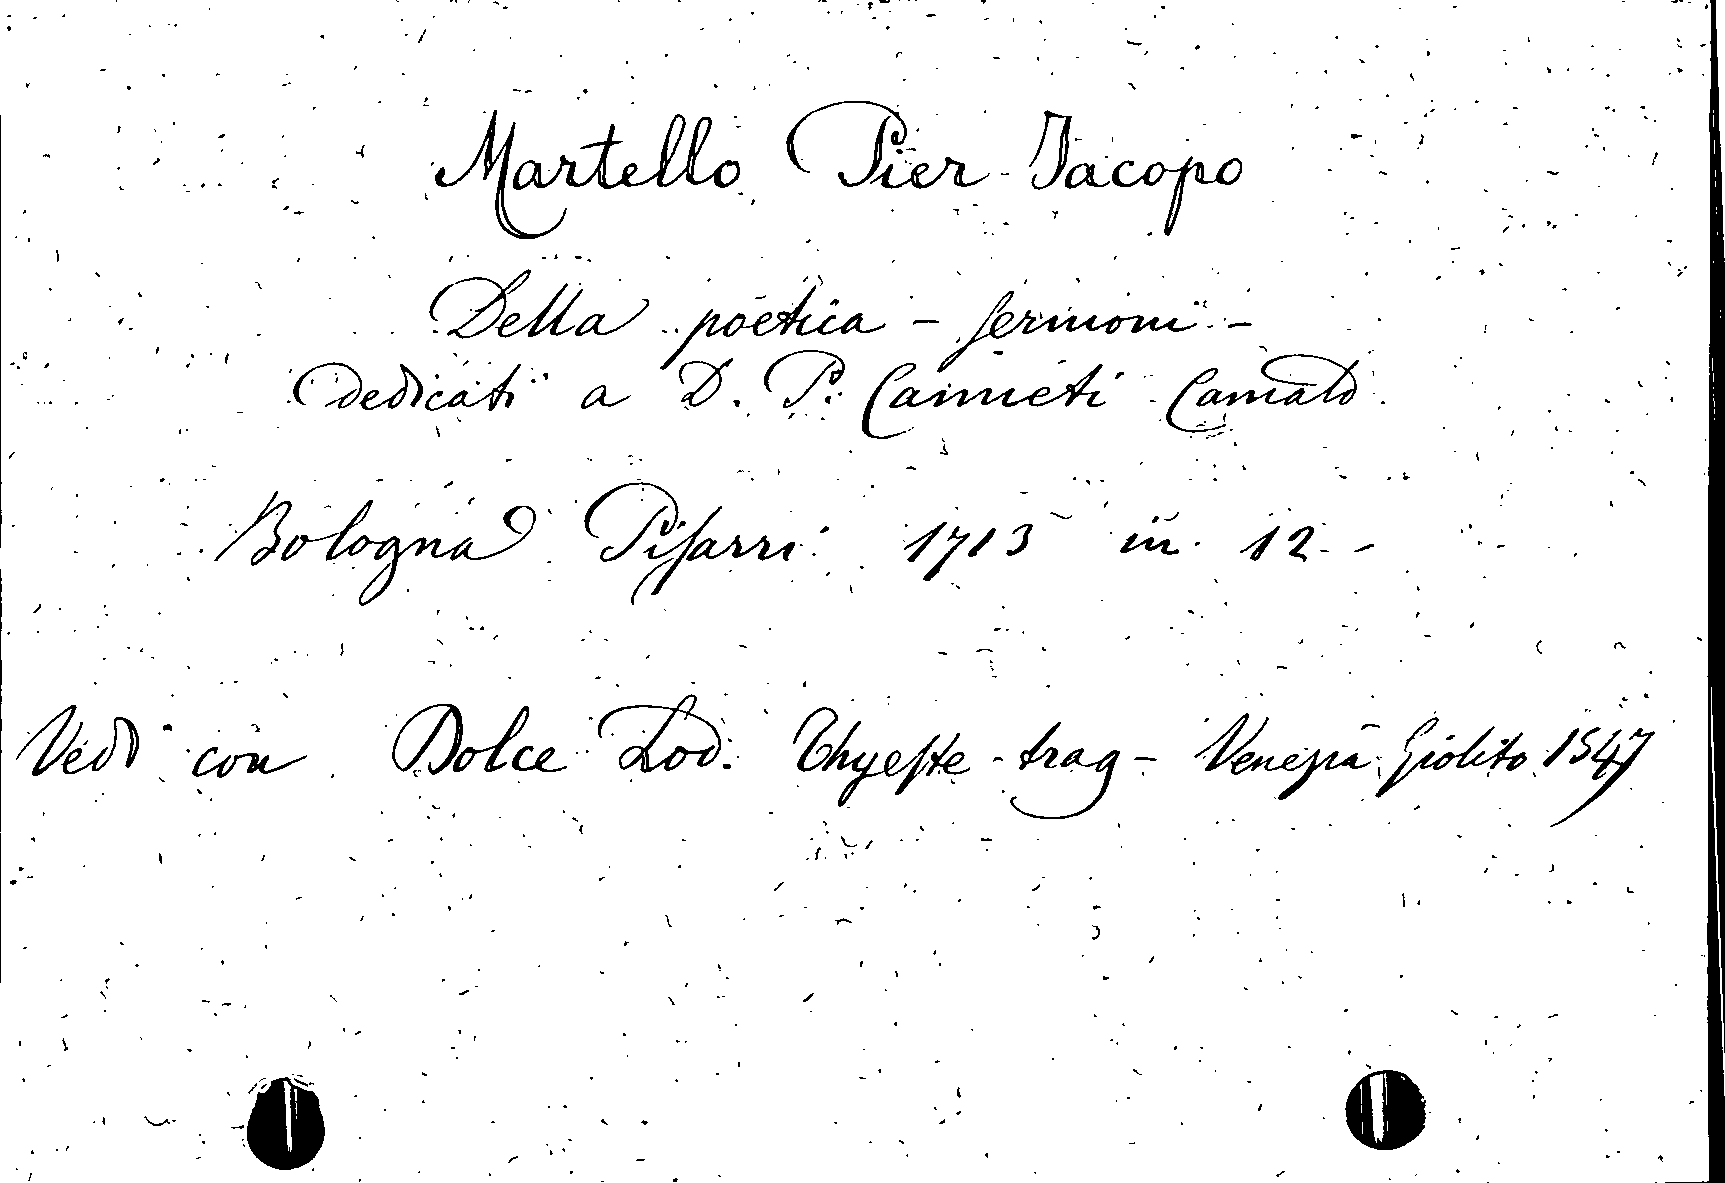 Martello Pier Jacopo
Della poetica - sermoni -
dedicati a D. P. Canneti Camald
Bologna Pisarri 1713 in 12 -
Vedi con Dolce Lod. Thyeste trag - Venezia Giolito 1547